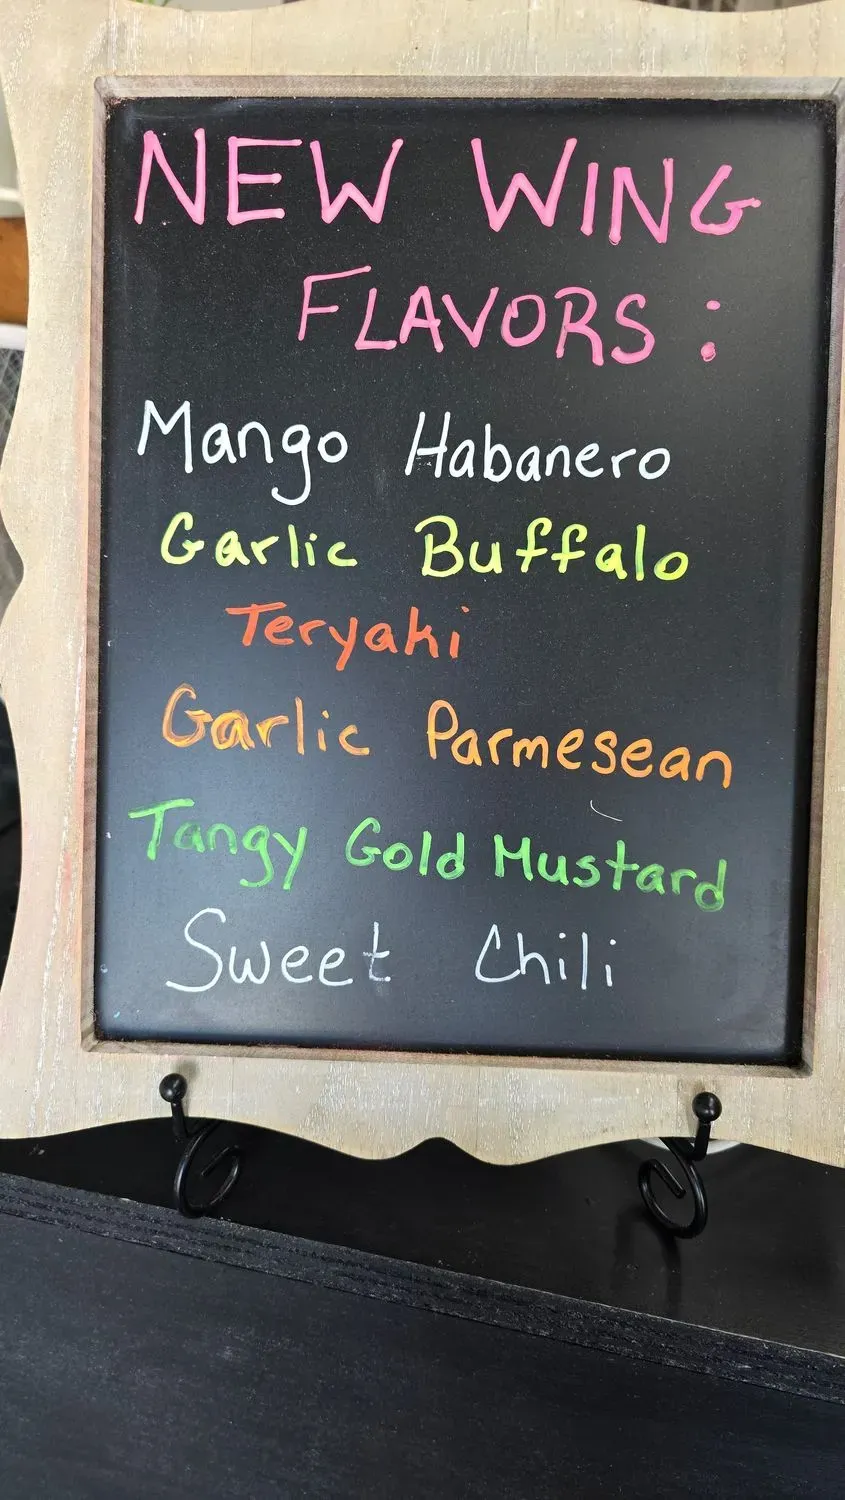 NEW WING
FLAVORS:
Mango Habanero
Garlic Buffalo
Teryaki
Garlic Parmesean
Tangy Gold Mustard
Sweet Chili